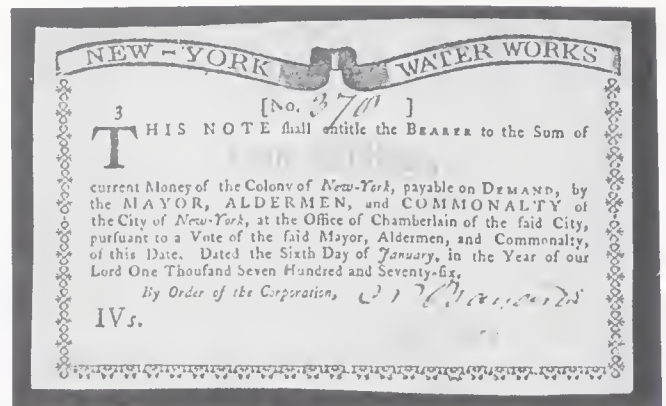 NEW-YORK WATER WORKS
[No. ]
3
THIS NOTE ſhall entitle the BEARER to the Sum of
current Money of the Colony of New-York, payable on DEMAND, by
the MAYOR, ALDERMEN, and COMMONALTY of
the City of New-York, at the Office of Chamberlain of the ſaid City,
purſuant to a Vote of the ſaid Mayor, Aldermen, and Commonalty,
of this Date. Dated the Sixth Day of January, in the Year of our
Lord One Thouſand Seven Hundred and Seventy-ſix.
By Order of the Corporation,
IVs.